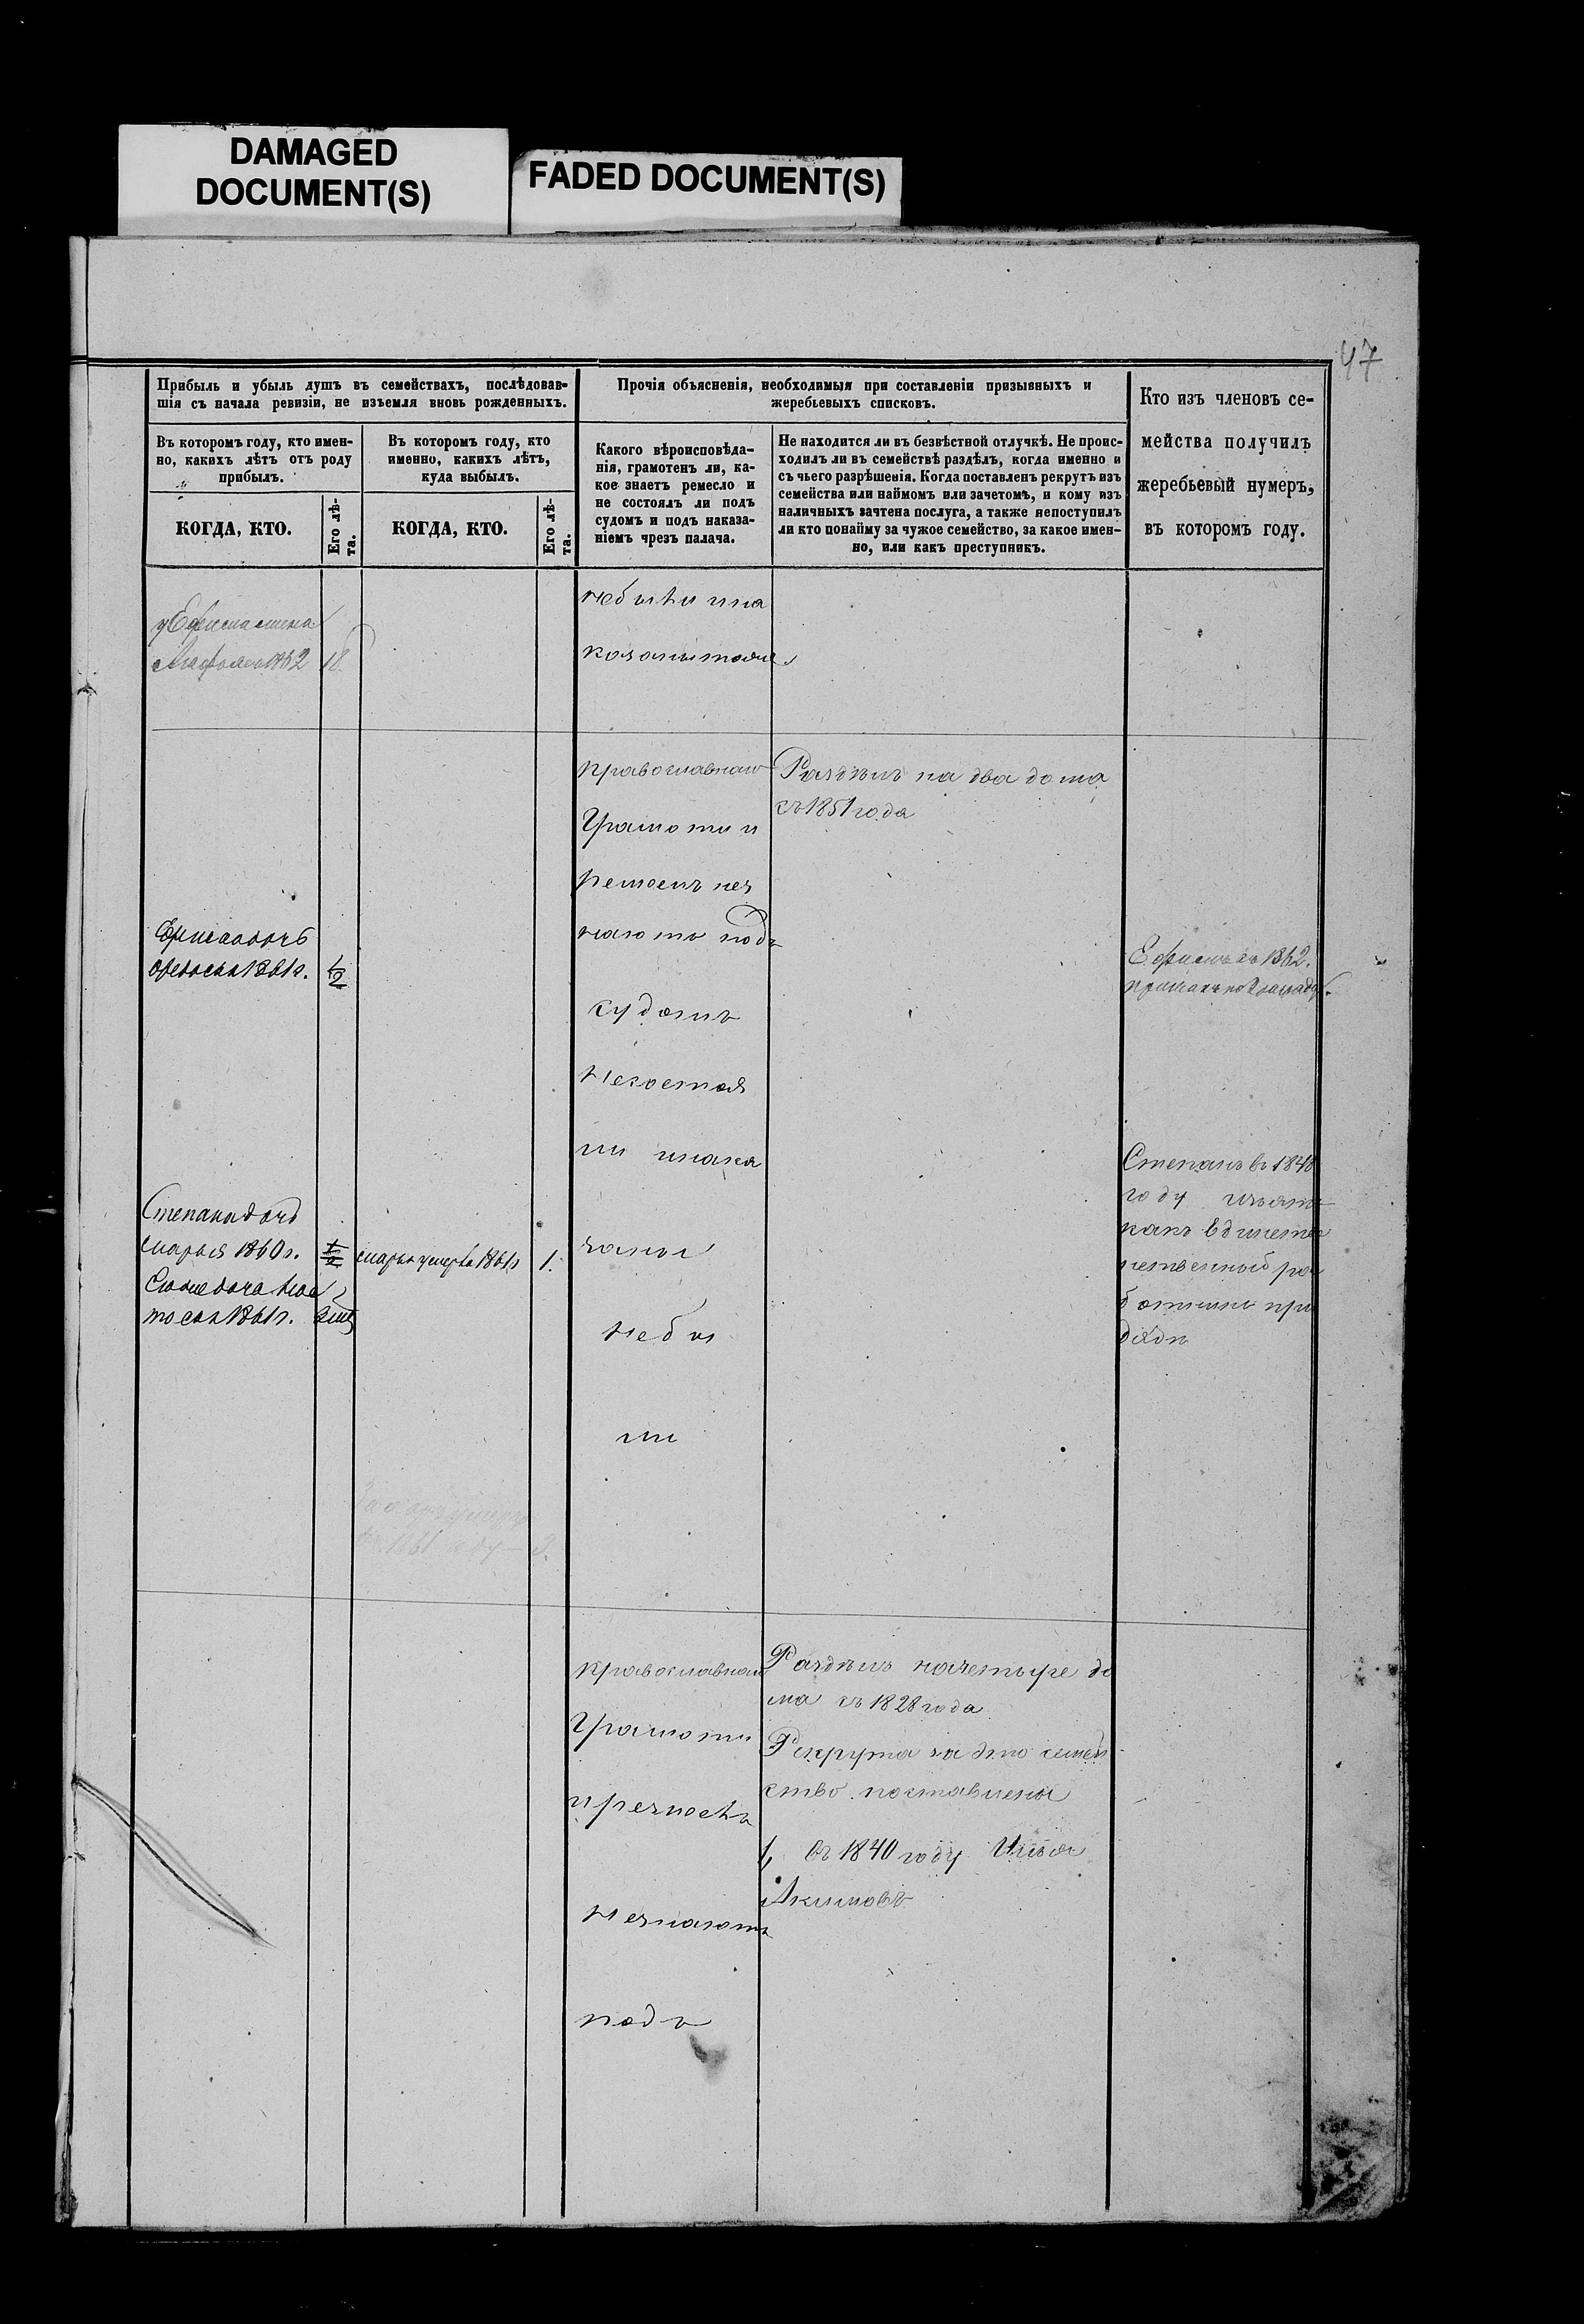 DAMAGED
DOCUMENT(S)
FADED DOCUMENT(S)
47
Прибыль и убыль душъ въ семействахъ, послѣдовав-
шія съ начала ревизіи, не изъемля вновь рожденныхъ.
Прочія объясненія, необходимыя при составленіи призывныхъ и
жеребьевыхъ списковъ.
Кто изъ членовъ се-
мейства получилъ
жеребьевый нумеръ,
въ которомъ году.
Въ которомъ году, кто имен-
но, какихъ лѣтъ отъ роду
прибылъ.
Въ которомъ году, кто
именно, какихъ лѣтъ,
куда выбылъ.
Какого вѣроисповѣда-
нія, грамотенъ ли, ка-
кое знаетъ ремесло и
не состоялъ ли подъ
судомъ и подъ наказа-
ніемъ чрезъ палача.
Не находится ли въ безвѣстной отлучкѣ. Не проис-
ходилъ ли въ семействѣ раздѣлъ, когда именно и
съ чьего разрѣшенія. Когда поставленъ рекрутъ изъ
семейства или наймомъ или зачетомъ, и кому изъ
наличныхъ зачтена послуга, а также непоступилъ
ли кто понайму за чужое семейство, за какое имен-
но, или какъ преступникъ.
КОГДА, КТО.
Его лѣ-
та.
КОГДА, КТО.
Его лѣ-
та.
1862 18
небыли ина
казаны
православнаго
Грамоти и
ремеслъ нез
наютъ подъ
судомъ
несостоя
ли инака
заны
небы
ли
Раздѣлъ на два дома
съ 1851 года
1861г. ½
Ефимъ въ 1862.
Степанъ въ 1840
году изъятъ
какъ Единств
ственный ра
ботникъ при
дядѣ
Степана дочь
марья 1860г.
марья умерла 1861г 1.
1861г.
умеръ
1861 году — 3.
православнаго
Грамоти
иремесла
незнаютъ
подъ
Раздѣлъ начетыре до
ма съ 1828 года
Рекрута за это семей
ство поставлены
1, въ 1840 году Илья
Акимовъ